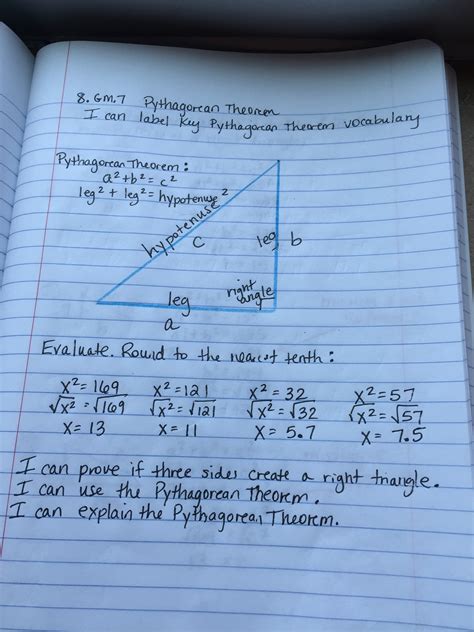 8.GM.7 Pythagorean Theorem
I can label key Pythagorean Theorem vocabulary
Pythagorean Theorem:
a² + b² = c²
leg² + leg² = hypotenuse²
hypotenuse
c
leg
b
right
angle
leg
a
Evaluate. Round to the nearest tenth:
x² = 169 x² = 121 x² = 32 x² = 57
√x² = √169 √x² = √121 √x² = √32 √x² = √57
x = 13 x = 11 x = 5.7 x = 7.5
I can prove if three sides create a right triangle.
I can use the Pythagorean Theorem.
I can explain the Pythagorean Theorem.